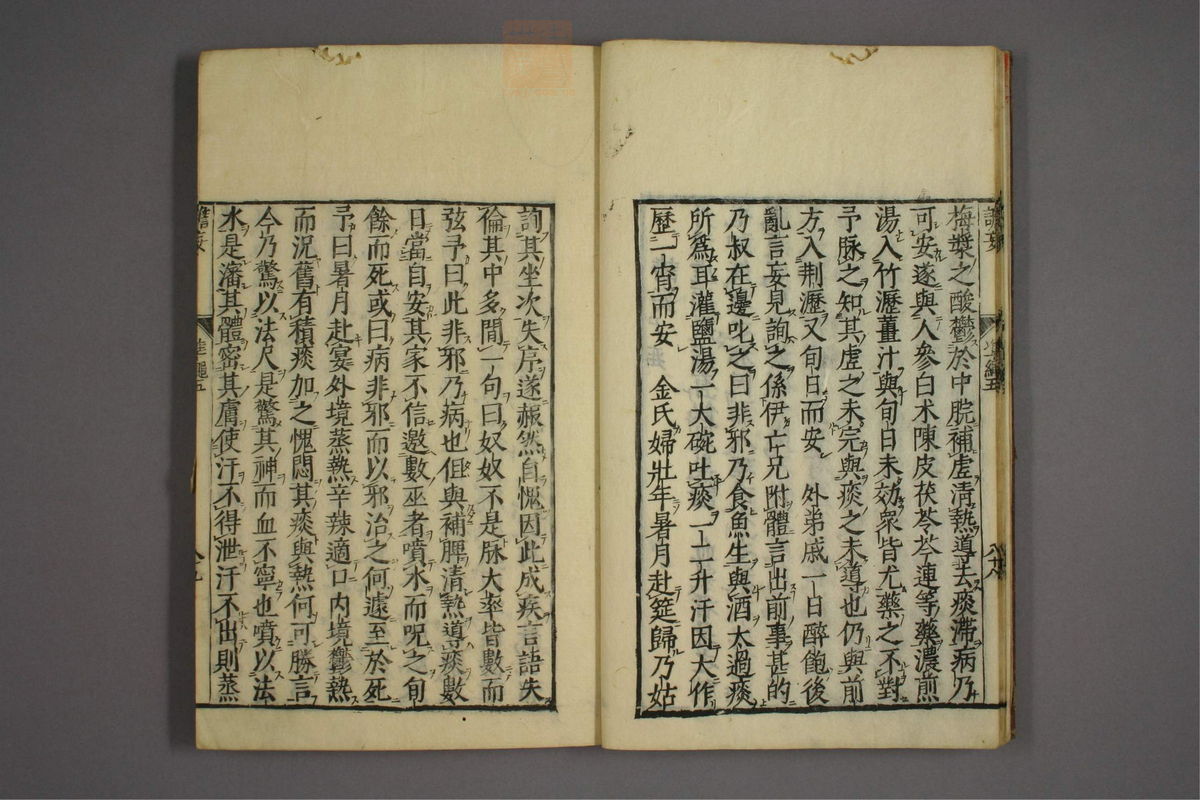 梅漿之酸鬱於中脘補虛清熱導去痰滯病乃
可安遂與人參白朮陳皮茯苓芩連等藥濃煎
湯入竹瀝薑汁與旬日未効衆皆尤藥之不對
予脉之知其虛之未完與痰之未導也仍與前
方入荆瀝又旬日而安　外弟戚一日醉飽後
亂言妄見詢之係伊亡兄附體言出前事甚的
乃叔在邊叱之曰非邪乃食魚生與酒太過痰
所爲耳灌鹽湯一大碗吐痰一二升汗因大作
歷一宵而安　金氏婦壯年暑月赴筵歸乃姑
詢其坐次失序遂赧然自愧因此成疾言語失
倫其中多間一句曰奴奴不是脉大率皆數而
弦予曰此非邪乃病也但與補脾清熱導痰數
日當自安其家不信邀數巫者噴水而呪之旬
餘而死或曰病非邪而以邪治之何遽至於死
予曰暑月赴宴外境蒸熱辛辣適口内境鬱熱
而況舊有積痰加之愧悶其痰與熱何可勝言
今乃驚以法尺是驚其神而血不寧也噴以法
水是瀋其體密其膚使汗不得泄汗不出則蒸